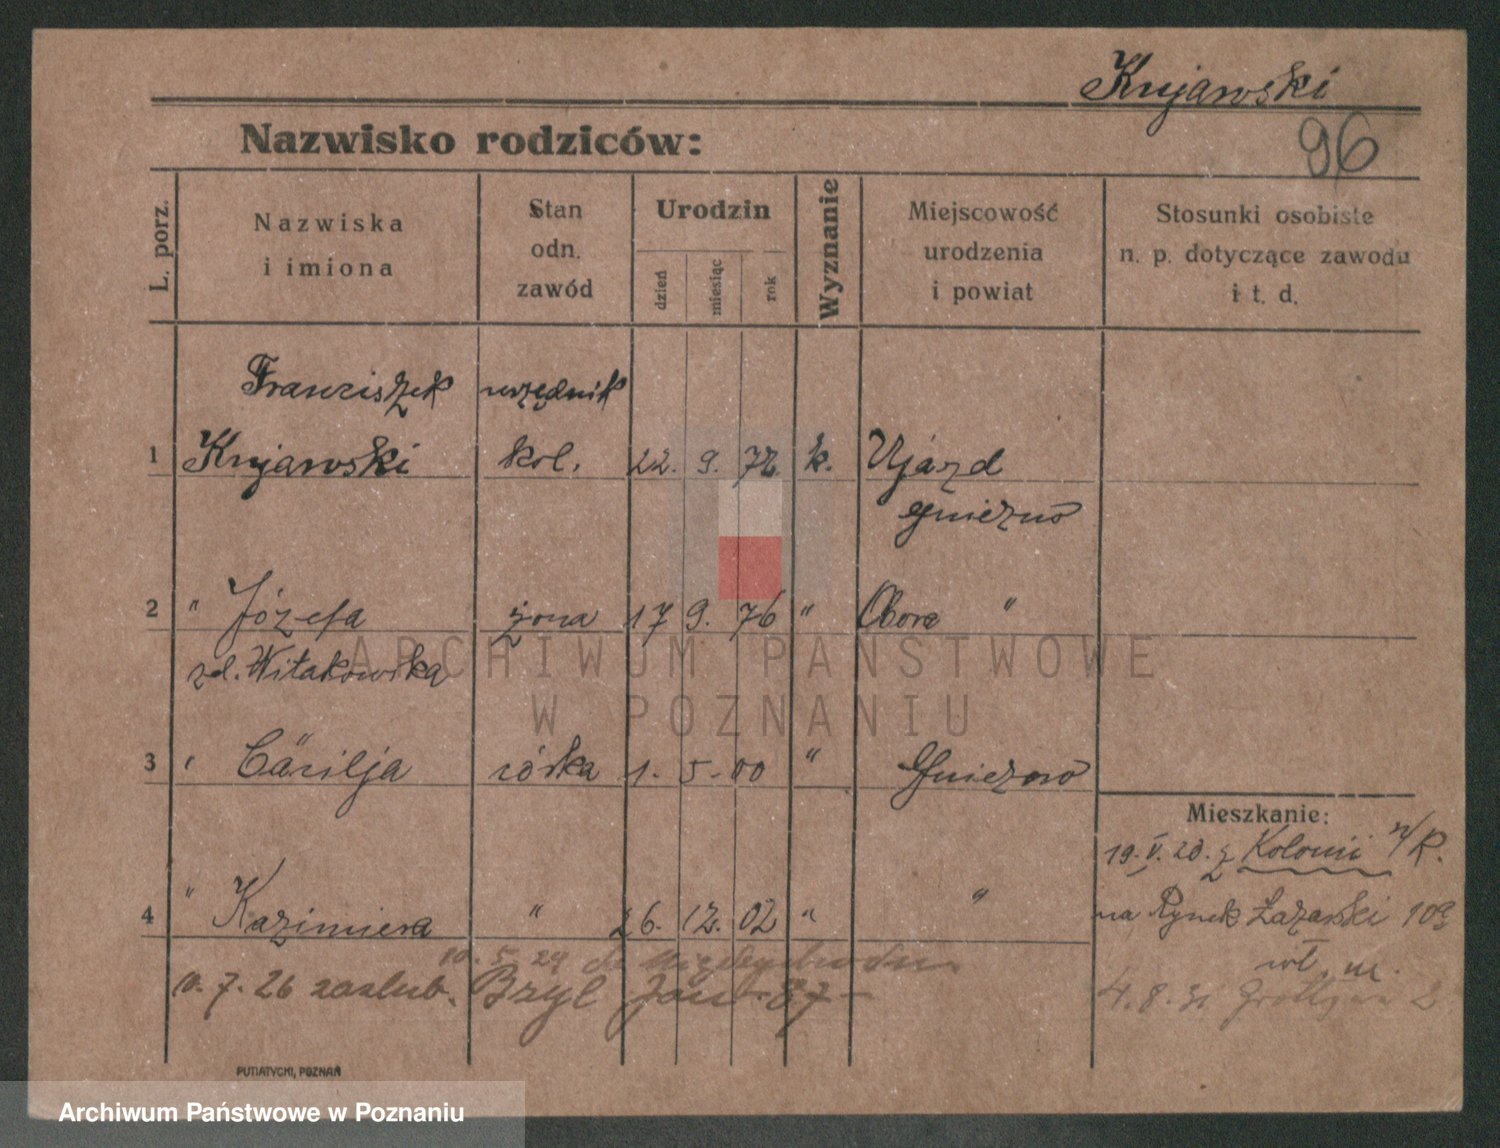 Kujawski
96
Nazwisko rodziców:
L. porz.
Nazwiska
i imiona
Stan
odn.
zawód
Urodzin
dzień
miesiąc
rok
Wyznanie
Miejscowość
urodzenia
i powiat
Stosunki osobiste
n. p. dotyczące zawodu
i t. d.
Franciszek urzędnik
1 Kujawski kol. 22. 9. 72. k. Ujazd
Gniezno
2 " Józefa żona 17 9. 76 " Obora "
zd. Witakowska
3 " Cäcilja córka 1. 5. 00 " Gniezno
4 " Kazimiera " 26. 12. 02 " "
10. 5. 29 do Międzychodu
7. 26 zaslub. Bzyl Jan 87
Mieszkanie:
19. V. 20. z Kolonii n/R.
na Rynek Łazarski 10
wł. m.
4. 8. 31 Grottgera 2
PUTIATYCKI, POZNAŃ
ARCHIWUM PAŃSTWOWE
W POZNANIU
Archiwum Państwowe w Poznaniu